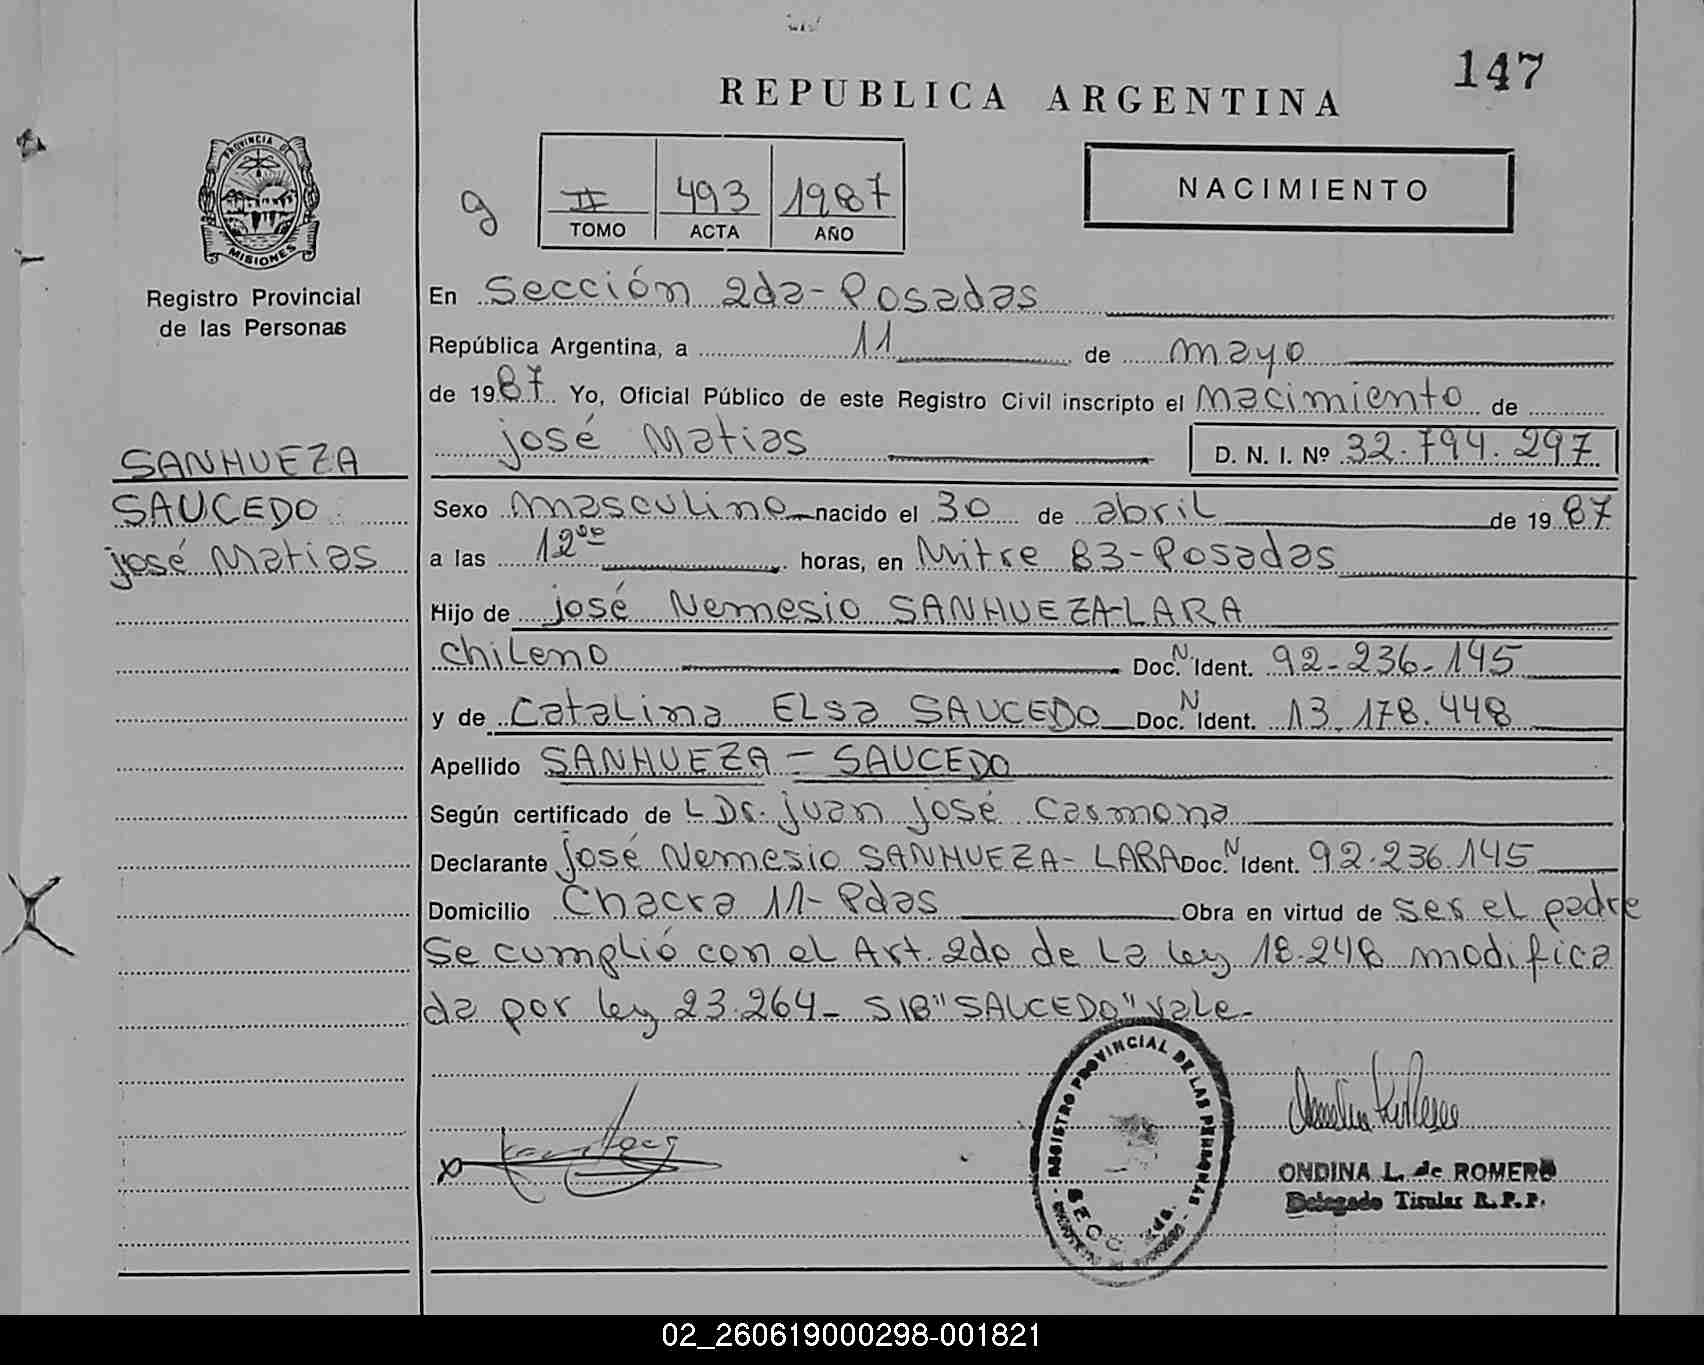 147
REPUBLICA ARGENTINA
PROVINCIA DE
MISIONES
Registro Provincial
de las Personas
g
II 493 1987
TOMO ACTA AÑO
NACIMIENTO
En Sección 2da- Posadas
República Argentina, a 11 de mayo
de 1987 Yo, Oficial Público de este Registro Civil inscripto el Nacimiento de
José Matias D. N. I. Nº 32.794.297
SANHUEZA
SAUCEDO
José Matias
Sexo masculino nacido el 30 de abril de 1987
a las 12ºº horas, en Mitre 83-Posadas
Hijo de José Nemesio SANHUEZA-LARA
chileno Doc. N Ident. 92-236-145
y de Catalina ELsa SAUCEDO Doc. N Ident. 13.178.448
Apellido SANHUEZA - SAUCEDO
Según certificado de L Dr. Juan José Carmona
Declarante José Nemesio SANHUEZA- LARA Doc. N Ident. 92.236.145
Domicilio Chacra 11- Pdas Obra en virtud de ser el padre
Se cumplió con el Art. 2do de La Ley 18.248 modifica
da por Ley 23.264- S/B "SAUCEDO" Vale-
REGISTRO PROVINCIAL DE LAS PERSONAS
SECC. 2da.
ONDINA L. de ROMERO
Delegado Titular R.P.P.
02_260619000298-001821